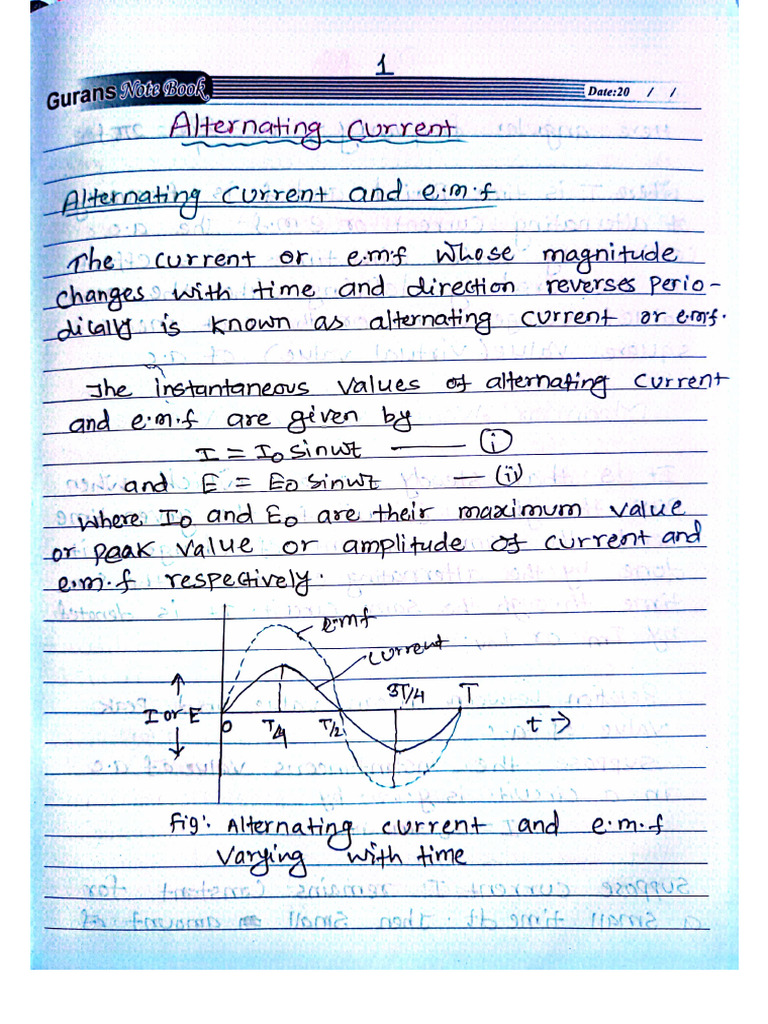 1
Gurans Note Book
Date:20 / /
Alternating Current
Alternating current and e.m.f
The current or e.m.f whose magnitude
changes with time and direction reverses perio-
dically is known as alternating current or e.m.f.
The instantaneous values of alternating current
and e.m.f are given by
I = I₀ sinωt —— (i)
and E = E₀ sinωt — (ii)
where I₀ and E₀ are their maximum value
or peak value or amplitude of current and
e.m.f respectively.
e.m.f
current
3T/4 T
I or E
0 T/4 T/2 t →
Fig: Alternating current and e.m.f
varying with time